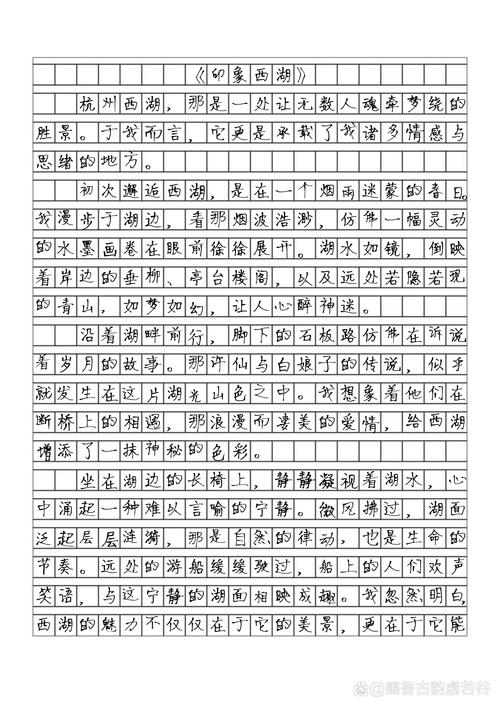 《印象西湖》
杭州西湖，那是一处让无数人魂牵梦绕的
胜景。于我而言，它更是承载了我诸多情感与
思绪的地方。
初次邂逅西湖，是在一个烟雨迷蒙的春日。
我漫步于湖边，看那烟波浩渺，仿佛一幅灵动
的水墨画卷在眼前徐徐展开。湖水如镜，倒映
着岸边的垂柳、亭台楼阁，以及远处若隐若现
的青山，如梦如幻，让人心醉神迷。
沿着湖畔前行，脚下的石板路仿佛在诉说
着岁月的故事。那许仙与白娘子的传说，似乎
就发生在这片湖光山色之中。我想象着他们在
断桥上的相遇，那浪漫而凄美的爱情，给西湖
增添了一抹神秘的色彩。
坐在湖边的长椅上，静静凝视着湖水，心
中涌起一种难以言喻的宁静。微风拂过，湖面
泛起层层涟漪，那是自然的律动，也是生命的
节奏。远处的游船缓缓驶过，船上的人们欢声
笑语，与这宁静的湖面相映成趣。我忽然明白，
西湖的魅力不仅仅在于它的美景，更在于它能